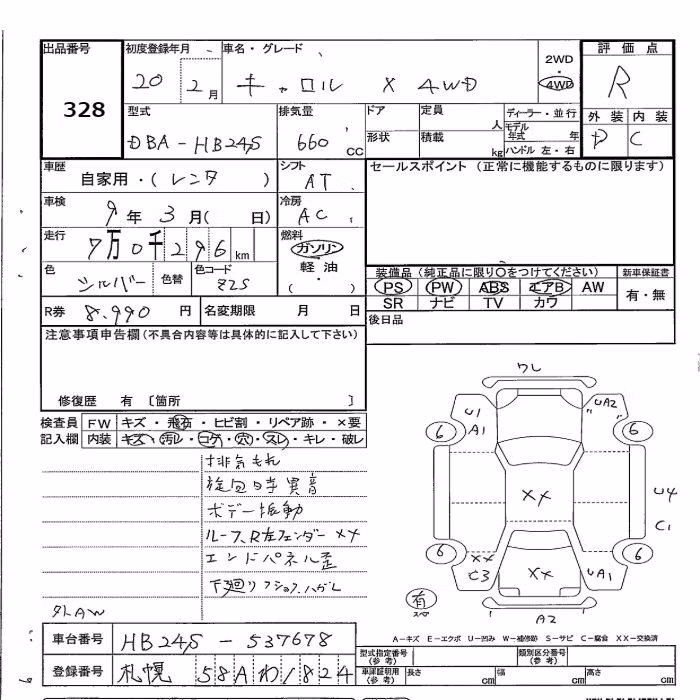 出品番号 初度登録年月 車名・グレード 2WD ・ 4WD 評価点
328 20 2月 キャロル X 4WD R
型式 排気量 ドア 定員 人 ディーラー・並行 外装 内装
DBA-HB24S 660 CC 形状 積載 kg モデル年式 年 ハンドル 左・右 D C
車歴 シフト セールスポイント (正常に機能するものに限ります)
自家用・(レンタ ) AT
車検 冷房
9年 3月( 日) AC
走行 燃料
7万0千296km ガソリン
軽油
( )
色 シルバー 色替 色コード Z2S
装備品 (純正品に限り○をつけてください) 新車保証書
PS PW ABS エアB AW 有・無
SR ナビ TV カワ
R券 8,990円 名変期限 月 日 後日品
注意事項申告欄(不具合内容等は具体的に記入して下さい)
修復歴 有 〔箇所 〕
検査員 FW キズ・飛石・ヒビ割・リペア跡・×要
記入欄 内装 キズ・汚レ・コゲ・穴・スレ・キレ・破レ
排気もれ
旋回時異音
ボデー振動
ルーフ、R左フェンダー XX
エンドパネル歪
下廻り
外AW
ワレ
U1 A1 "UA2"
6 6
XX U4
C1
6 6
XX C3 XX UA1
有
スペア
A2
A-キズ E-エクボ U-凹み W-補修跡 S-サビ C-腐食 XX-交換済
車台番号 HB24S-537678
登録番号 札幌 58A わ1824
型式指定番号 (参考) 類別区分番号 (参考)
車庫証明用 (参考) 長さ cm 幅 cm 高さ cm